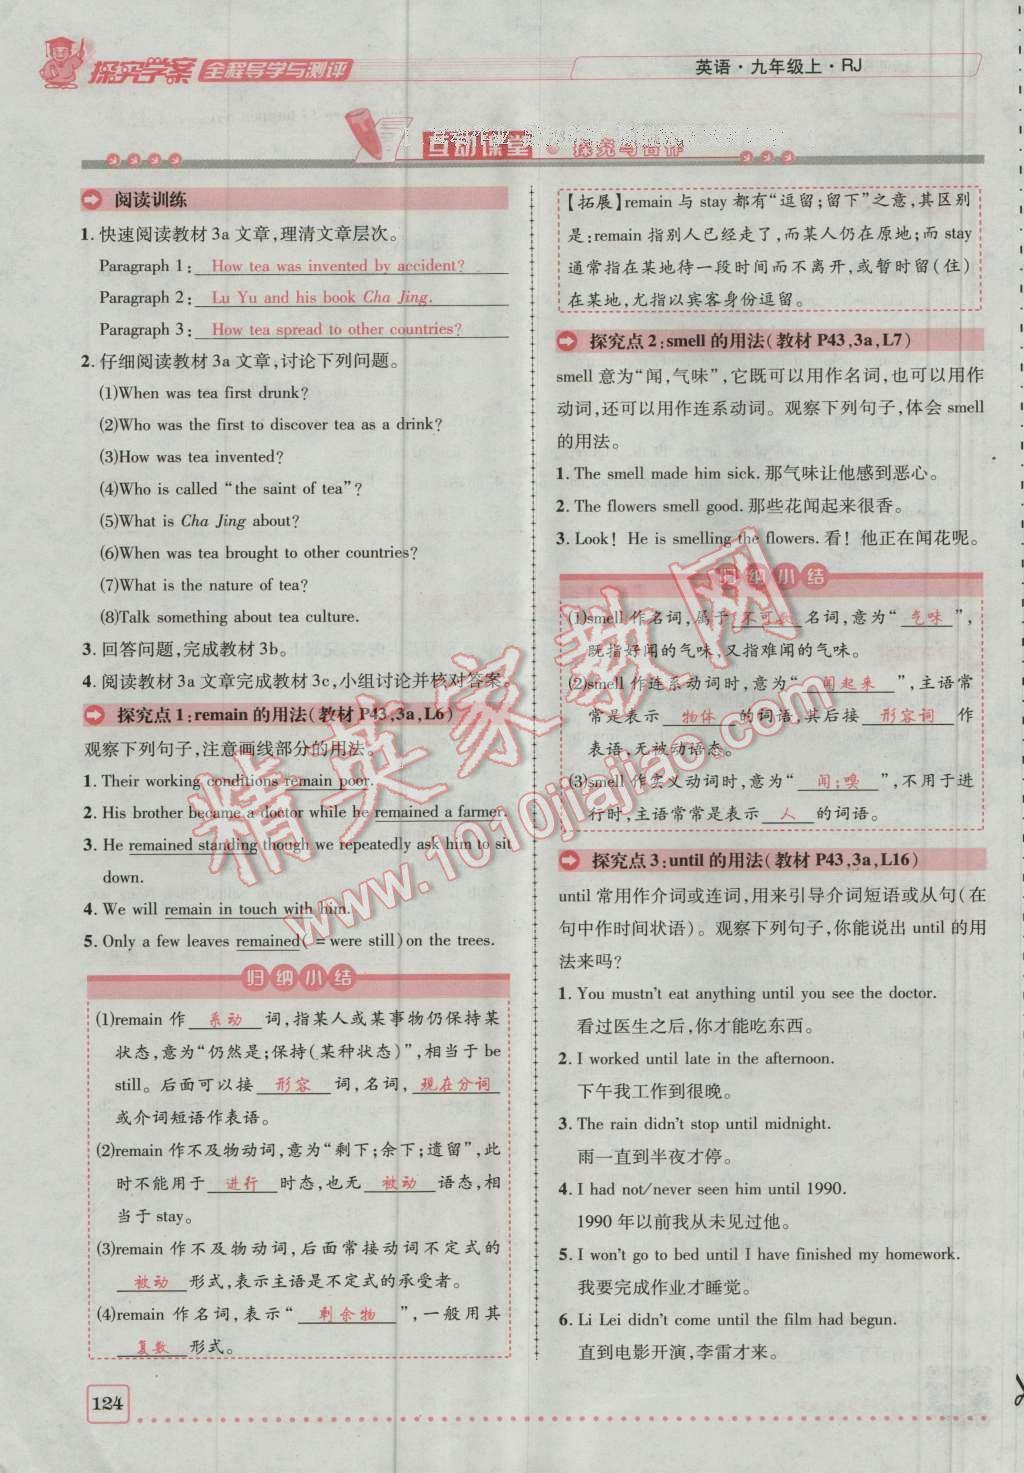 探究学案 全程导学与测评
英语·九年级上·RJ
互动课堂·探究与合作
阅读训练
1. 快速阅读教材3a文章,理清文章层次。
Paragraph 1: How tea was invented by accident?
Paragraph 2: Lu Yu and his book Cha Jing.
Paragraph 3: How tea spread to other countries?
2. 仔细阅读教材3a文章,讨论下列问题。
(1)When was tea first drunk?
(2)Who was the first to discover tea as a drink?
(3)How was tea invented?
(4)Who is called “the saint of tea”?
(5)What is Cha Jing about?
(6)When was tea brought to other countries?
(7)What is the nature of tea?
(8)Talk something about tea culture.
3. 回答问题,完成教材3b。
4. 阅读教材3a文章完成教材3c,小组讨论并核对答案。
探究点1:remain的用法(教材P43,3a,L6)
观察下列句子,注意画线部分的用法。
1. Their working conditions remain poor.
2. His brother became a doctor while he remained a farmer.
3. He remained standing though we repeatedly ask him to sit
down.
4. We will remain in touch with him.
5. Only a few leaves remained( =were still)on the trees.
归纳小结
(1)remain作 系动 词,指某人或某事物仍保持某
状态,意为“仍然是;保持(某种状态)”,相当于be
still。后面可以接 形容 词,名词, 现在分词
或介词短语作表语。
(2)remain作不及物动词,意为“剩下;余下;遗留”,此
时不能用于 进行 时态,也无 被动 语态,相
当于stay。
(3)remain作不及物动词,后面常接动词不定式的
被动 形式,表示主语是不定式的承受者。
(4)remain作名词,表示“ 剩余物 ”,一般用其
复数 形式。
124
【拓展】remain与stay都有“逗留;留下”之意,其区别
是:remain指别人已经走了,而某人仍在原地;而stay
通常指在某地待一段时间而不离开,或暂时留(住)
在某地,尤指以宾客身份逗留。
探究点2:smell的用法(教材P43,3a,L7)
smell意为“闻,气味”,它既可以用作名词,也可以用作
动词,还可以用作连系动词。观察下列句子,体会smell
的用法。
1. The smell made him sick. 那气味让他感到恶心。
2. The flowers smell good. 那些花闻起来很香。
3. Look! He is smelling the flowers. 看!他正在闻花呢。
归纳小结
(1)smell作名词,属于 不可数 名词,意为“ 气味 ”,
既指好闻的气味,又指难闻的气味。
(2)smell作连系动词时,意为“ 闻起来 ”,主语常
常是表示 物体 的词语,其后接 形容词 作
表语,无被动语态。
(3)smell作实义动词时,意为“ 闻;嗅 ”,不用于进
行时,主语常常是表示 人 的词语。
探究点3:until的用法(教材P43,3a,L16)
until常用作介词或连词,用来引导介词短语或从句(在
句中作时间状语)。观察下列句子,你能说出until的用
法来吗?
1. You mustn't eat anything until you see the doctor.
看过医生之后,你才能吃东西。
2. I worked until late in the afternoon.
下午我工作到很晚。
3. The rain didn't stop until midnight.
雨一直到半夜才停。
4. I had not/never seen him until 1990.
1990年以前我从未见过他。
5. I won't go to bed until I have finished my homework.
我要完成作业才睡觉。
6. Li Lei didn't come until the film had begun.
直到电影开演,李雷才来。
精英家教网
www.1010jiajiao.com